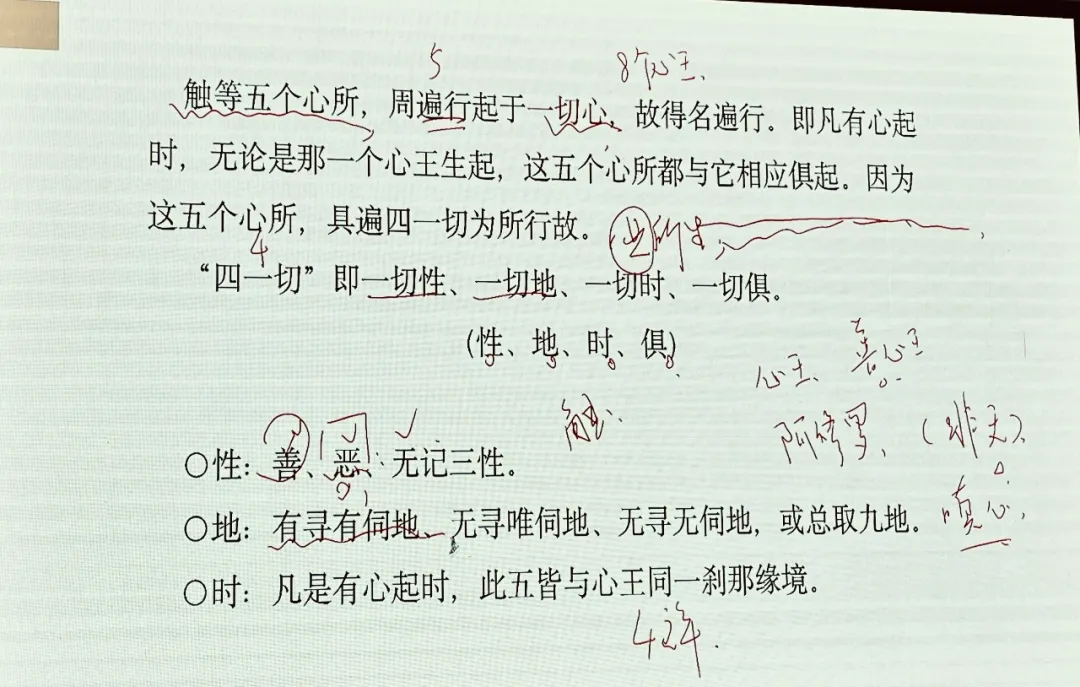 5 8个心王、
触等五个心所，周遍行起于一切心，故得名遍行。即凡有心起
时，无论是那一个心王生起，这五个心所都与它相应俱起。因为
这五个心所，具遍四一切为所行故。
4
“四一切”即一切性、一切地、一切时、一切俱。
(性、地、时、俱)
心王、善心王
触
阿修罗、(非天)、
○性：善、恶、无记三性。
○地：有寻有伺地、无寻唯伺地、无寻无伺地，或总取九地。
嗔心，
○时：凡是有心起时，此五皆与心王同一刹那缘境。